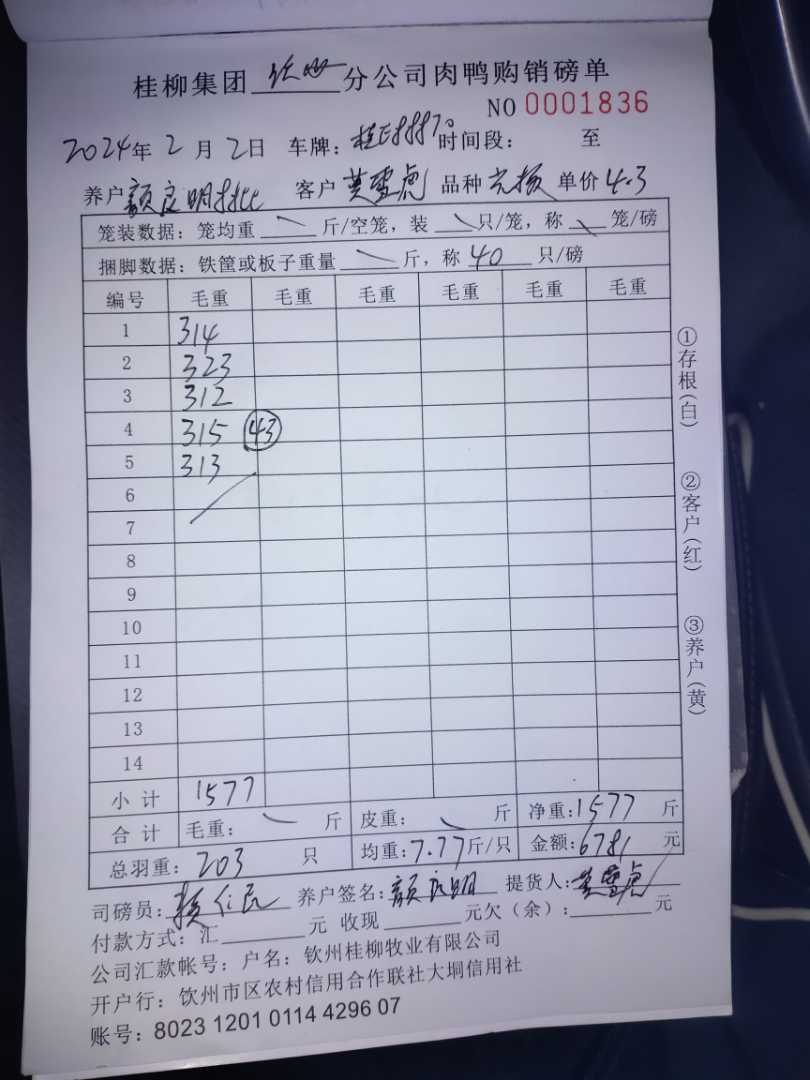 桂柳集团 钦州 分公司肉鸭购销磅单
NO 0001836
2024年 2 月 2日 车牌: 桂E88870 时间段: 至
养户 颜良明 客户 黄雪虎 品种 单价 4.3
笼装数据: 笼均重 斤/空笼, 装 只/笼, 称 笼/磅
捆脚数据: 铁筐或板子重量 斤, 称 40 只/磅
编号 毛重 毛重 毛重 毛重 毛重 毛重
1 314
2 323
3 312
4 315 43
5 313
6
7
8
9
10
11
12
13
14
小 计 1577
合 计 毛重: 斤 皮重: 斤 净重:1577 斤
总羽重: 203 只 均重:7.77斤/只 金额:6781 元
司磅员: 仁民 养户签名: 颜良明 提货人: 黄雪虎
付款方式: 汇 元 收现 元欠(余): 元
公司汇款帐号: 户名: 钦州桂柳牧业有限公司
开户行: 钦州市区农村信用合作联社大垌信用社
账号: 8023 1201 0114 4296 07
①存根(白) ②客户(红) ③养户(黄)